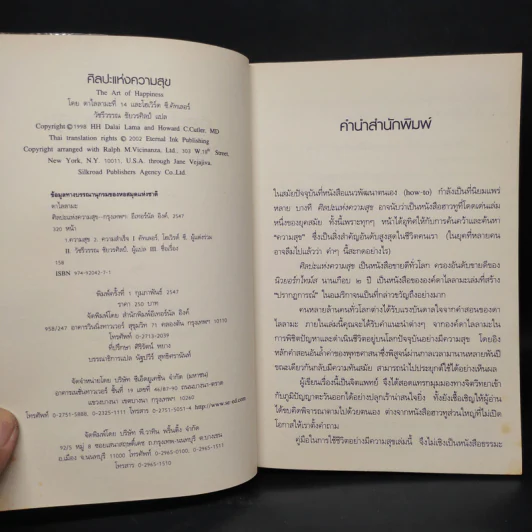 ศิลปะแห่งความสุข
The Art of Happiness
โดย ดาไลลามะที่ 14 และโฮเวิร์ด ซี.คัทเลอร์
วัชรีวรรณ ชัยวรศิลป์ แปล
Copyright © 1998 HH Dalai Lama and Howard C.Cutler, MD
Thai translation rights © 2002 by Eternal Ink Publishing
Copyright arranged with Ralph M.Vicinanza, Ltd., 303 W.18th Street,
New York, N.Y. 10011, U.S.A. through Jane Vejajiva,
Silkroad Publishers Agency Co.Ltd.
ข้อมูลทางบรรณานุกรมของหอสมุดแห่งชาติ
ดาไลลามะ
ศิลปะแห่งความสุข.-กรุงเทพฯ: อีเทอร์นัล อิงค์, 2547
320 หน้า
1.ความสุข 2. ความสำเร็จ I คัทเลอร์, โฮเวิร์ด ซี, ผู้แต่งร่วม
II วัชรีวรรณ ชัยวรศิลป์, ผู้แปล III ชื่อเรื่อง
158
ISBN 974-92042-7-1
พิมพ์ครั้งที่ 1 กุมภาพันธ์ 2547
ราคา 250 บาท
จัดพิมพ์โดย สำนักพิมพ์อีเทอร์นัล อิงค์
958/247 อาคารวินนิ่งทาวเวอร์ สุขุมวิท 71 คลองตัน กรุงเทพฯ 10110
โทรศัพท์ 0-2713-2039
ที่ปรึกษา ศิริรัตน์
บรรณาธิการแปล นัฐปวีร์
จัดจำหน่ายโดย บริษัท ซีเอ็ดยูเคชั่น จำกัด (มหาชน)
อาคารเนชั่นทาวเวอร์ ชั้นที่ 19 เลขที่ 46/87-90 ถนนบางนา-ตราด
แขวงบางนา เขตบางนา กรุงเทพฯ 10260
โทรศัพท์ 0-2751-5888, 0-2325-1111 โทรสาร 0-2751-5051-4 http://www.se-ed.com
จัดพิมพ์โดย บริษัท พี.วาทิน พริ้นติ้ง จำกัด
92/5 หมู่ 8 ถ.กรุงเทพ-นนทบุรี ต.บางเขน
อ.เมือง จ.นนทบุรี 11000 โทรศัพท์ 0-2965-0100, 0-2965-1511
โทรสาร 0-2965-1570
คำนำสำนักพิมพ์
ในสมัยปัจจุบันที่หนังสือแนวพัฒนาตนเอง (how-to) กำลังเป็นที่นิยมแพร่
หลาย บางที ศิลปะแห่งความสุข อาจนับเป็นหนังสือฮาวทูที่โดดเด่นเล่ม
หนึ่งของยุคสมัย ทั้งนี้เพราะทุกๆ หน้าได้อุทิศให้กับการค้นคว้าและค้นหา
"ความสุข" ซึ่งเป็นสิ่งสำคัญอันดับสูงสุดในชีวิตคนเรา (ในยุคที่หลายคน
อาจลืมไปแล้วว่า คำๆ นี้สะกดอย่างไร)
ศิลปะแห่งความสุข เป็นหนังสือขายดีทั่วโลก ครองอันดับขายดีของ
นิวยอร์กไทม์ส นานเกือบ ๒ ปี หนังสือขององค์ดาไลลามะเล่มที่สร้าง
"ปรากฏการณ์" ในอเมริกาจนเป็นที่กล่าวขวัญถึงอย่างมาก
คนหลายล้านคนทั่วโลกต่างได้รับแรงบันดาลใจจากคำสอนของดา
ไลลามะ ภายในเล่มนี้คุณจะได้รับคำแนะนำต่างๆ จากองค์ดาไลลามะใน
การพิชิตปัญหาและดำเนินชีวิตอยู่บนโลกปัจจุบันอย่างมีความสุข โดยอิง
หลักคำสอนอันล้ำค่าของพุทธศาสนา ซึ่งพิสูจน์ผ่านกาลเวลามานานหลายพันปี
ขณะเดียวกันกลับมีความทันสมัย สามารถนำไปประยุกต์ใช้ได้อย่างเห็นผล
ผู้เขียนเรื่องนี้เป็นจิตแพทย์ จึงได้สอดแทรกมุมมองทางจิตวิทยาเข้า
กับภูมิปัญญาตะวันออกได้อย่างเปลุกเร้าน่าสนใจยิ่ง ทั้งยังเชื้อเชิญให้ผู้อ่าน
ได้ขบคิดพิจารณาตามไปด้วยตนเอง ต่างจากหนังสือฮาวทูส่วนใหญ่ที่ไม่เปิด
โอกาสให้เราตั้งคำถาม
คู่มือในการใช้ชีวิตอย่างมีความสุขเล่มนี้ จึงไม่เชิงเป็นหนังสือธรรมะ